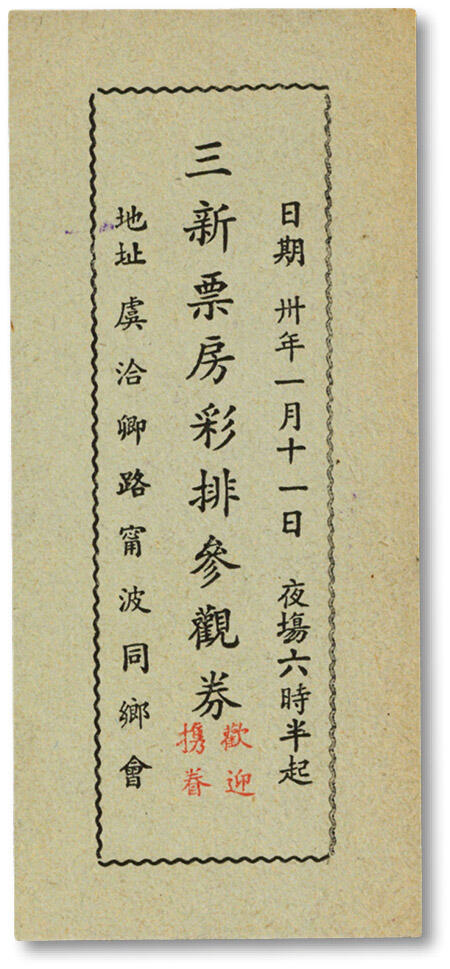 日期 卅年一月十一日 夜塲六時半起
三新票房彩排參觀券
歡迎
携眷
地址 虞洽卿路甯波同鄉會